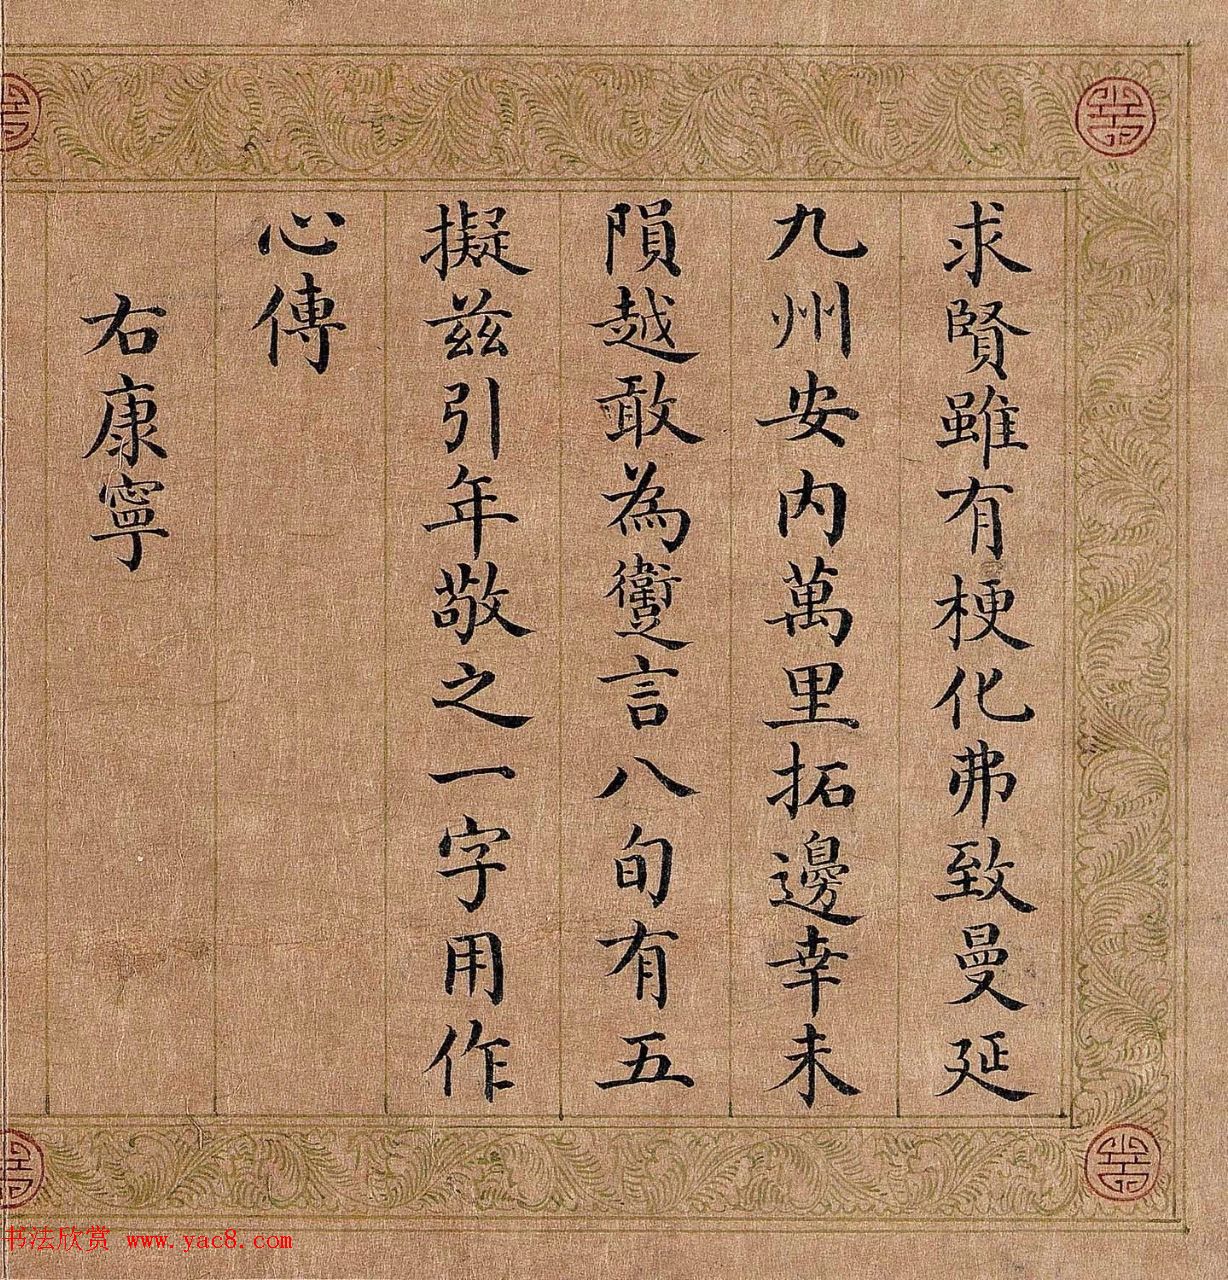 求賢雖有梗化弗致曼延
九州安內萬里拓邊幸未
隕越敢為躗言八旬有五
擬茲引年敬之一字用作
心傳
右康寧
书法欣赏 www.yac8.com